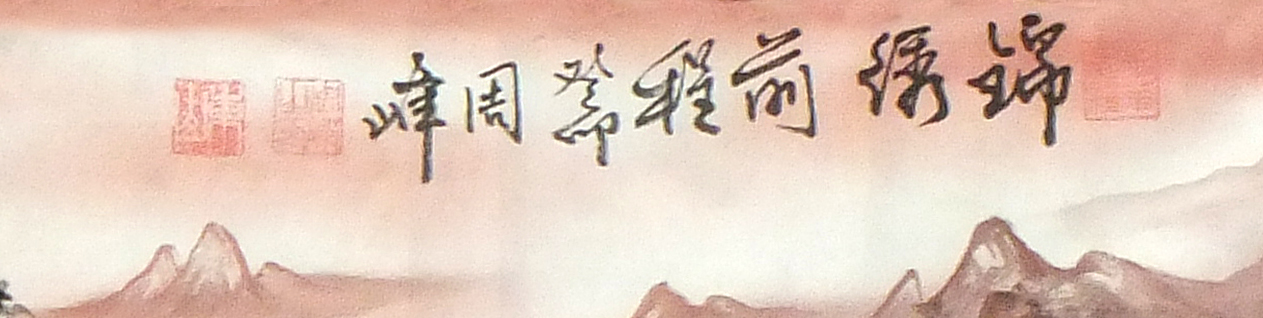 锦绣前程 癸卯 周峰